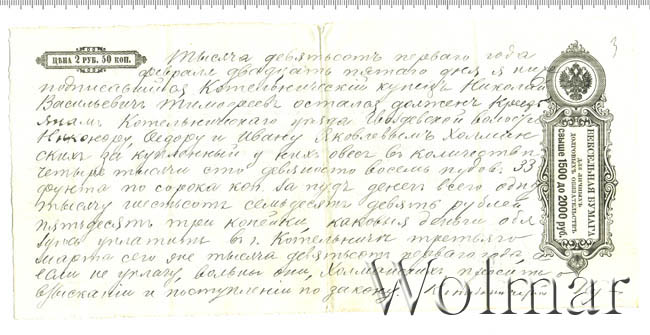 ЦѢНА 2 РУБ. 50 КОП.
3
Тысяча девятьсотъ перваго года
февраля двадцать пятаго дня я ниже
подписавшійся Котельническій купецъ Николай
Васильевичъ Тимофеевъ осталъ долженъ Кресть
янамъ Котельническаго уѣзда волости
Никонору, Федору и Ивану Яковлевымъ
скимъ за купленный у нихъ овесъ въ количествѣ
четыре тысячи сто девяносто восемь пудовъ 33
фунта по сорока коп. за пудъ денегъ всего одну
тысячу шестьсотъ семьдесятъ девять рублей
пятьдесятъ три копейки, каковыя деньги обя
зуюсь уплатить въ г. Котельничѣ третьяго
марта сего же тысяча девятьсотъ перваго года, а
если не уплачу, вольны они, просить о
взысканіи и поступленіи по закону.
ВЕКСЕЛЬНАЯ БУМАГА
ДЛЯ ЛИЧНЫХЪ
ДОЛГОВЫХЪ ОБЯЗАТЕЛЬСТВЪ
СВЫШЕ 1500 ДО 2000 РУБ.
Wolmar